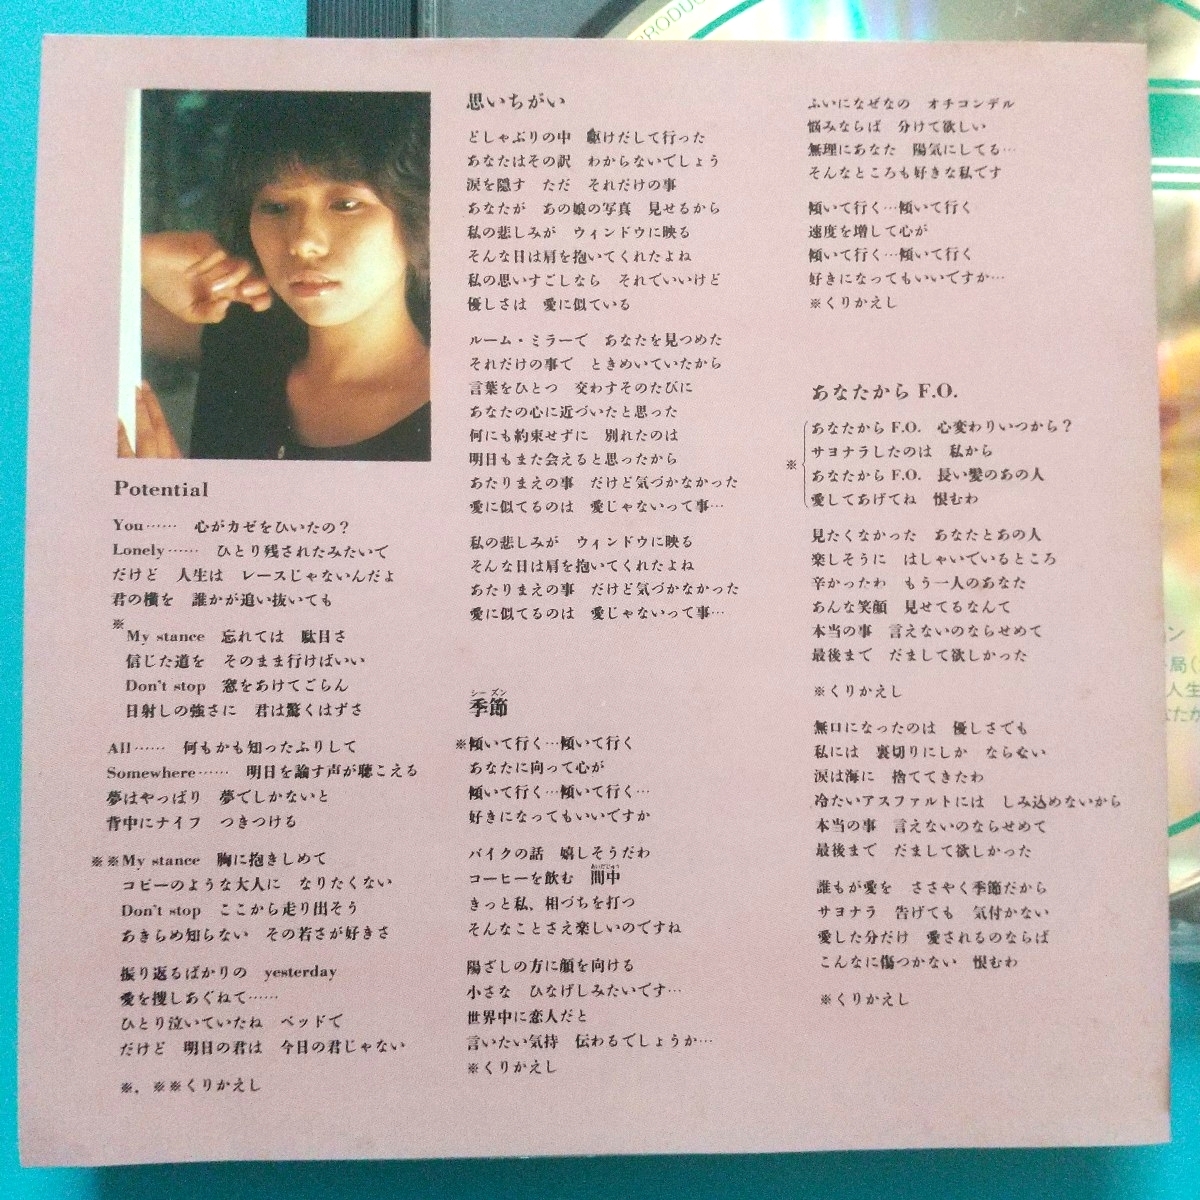 Potential
You…… 心がカゼをひいたの？
Lonely…… ひとり残されたみたいで
だけど 人生は レースじゃないんだよ
君の横を 誰かが追い抜いても
※
My stance 忘れては 駄目さ
信じた道を そのまま行けばいい
Don't stop 窓をあけてごらん
日射しの強さに 君は驚くはずさ
All…… 何もかも知ったふりして
Somewhere…… 明日を諭す声が聴こえる
夢はやっぱり 夢でしかないと
背中にナイフ つきつける
※※My stance 胸に抱きしめて
コピーのような大人に なりたくない
Don't stop ここから走り出そう
あきらめ知らない その若さが好きさ
振り返るばかりの yesterday
愛を捜しあぐねて……
ひとり泣いていたね ベッドで
だけど 明日の君は 今日の君じゃない
※，※※くりかえし
思いちがい
どしゃぶりの中 駆けだして行った
あなたはその訳 わからないでしょう
涙を隠す ただ それだけの事
あなたが あの娘の写真 見せるから
私の悲しみが ウィンドウに映る
そんな日は肩を抱いてくれたよね
私の思いすごしなら それでいいけど
優しさは 愛に似ている
ルーム・ミラーで あなたを見つめた
それだけの事で ときめいていたから
言葉をひとつ 交わすそのたびに
あなたの心に近づいたと思った
何にも約束せずに 別れたのは
明日もまた会えると思ったから
あたりまえの事 だけど気づかなかった
愛に似てるのは 愛じゃないって事…
私の悲しみが ウィンドウに映る
そんな日は肩を抱いてくれたよね
あたりまえの事 だけど気づかなかった
愛に似てるのは 愛じゃないって事…
シーズン
季節
※傾いて行く…傾いて行く
あなたに向って心が
傾いて行く…傾いて行く…
好きになってもいいですか
バイクの話 嬉しそうだわ
あいだじゅう
コーヒーを飲む 間中
きっと私，相づちを打つ
そんなことさえ楽しいのですね
陽ざしの方に顔を向ける
小さな ひなげしみたいです…
世界中に恋人だと
言いたい気持 伝わるでしょうか…
※くりかえし
ふいになぜなの オチコンデル
悩みならば 分けて欲しい
無理にあなた 陽気にしてる…
そんなところも好きな私です
傾いて行く…傾いて行く
速度を増して心が
傾いて行く…傾いて行く
好きになってもいいですか…
※くりかえし
あなたから F.O.
※
あなたから F.O. 心変わりいつから？
サヨナラしたのは 私から
あなたから F.O. 長い髪のあの人
愛してあげてね 恨むわ
見たくなかった あなたとあの人
楽しそうに はしゃいでいるところ
辛かったわ もう一人のあなた
あんな笑顔 見せてるなんて
本当の事 言えないのならせめて
最後まで だまして欲しかった
※くりかえし
無口になったのは 優しさでも
私には 裏切りにしか ならない
涙は海に 捨ててきたわ
冷たいアスファルトには しみ込めないから
本当の事 言えないのならせめて
最後まで だまして欲しかった
誰もが愛を ささやく季節だから
サヨナラ 告げても 気付かない
愛した分だけ 愛されるのならば
こんなに傷つかない 恨むわ
※くりかえし